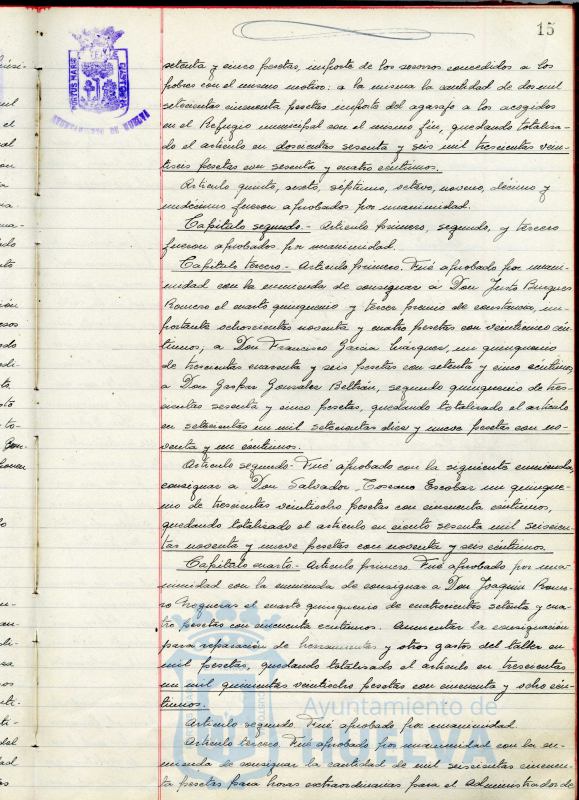 15
PORTUS MARIS ET TERRAE CUSTODIA
AYUNTAMIENTO DE HUELVA
setenta y cinco pesetas, importe de los socorros concedidos a los
pobres con el mismo motivo: a la misma la cantidad de dos mil
setecientas cincuenta pesetas importe del agasajo a los acogidos
en el Refugio municipal con el mismo fin, quedando totaliza-
do el artículo en doscientas sesenta y seis mil trescientas vein-
tiseis pesetas con sesenta y cuatro céntimos.
Artículo quinto, sexto, séptimo, octavo, noveno, décimo y
undécimo fueron aprobados por unanimidad.
Capítulo segundo.- Artículo primero, segundo, y tercero
fueron aprobados por unanimidad.
Capítulo tercero.- Artículo primero. Fué aprobado por unani-
midad con la enmienda de consignar a Don Justo Burgues
Romero el cuarto quinquenio y tercer premio de constancia, im-
portante ochocientas noventa y cuatro pesetas con veinticinco cén-
timos, a Don Francisco García Márquez, un quinquenio
de trescientas cuarenta y seis pesetas con setenta y cinco céntimos,
a Don Gaspar Gonzalez Beltrán, segundo quinquenio de tres-
cientas sesenta y cinco pesetas, quedando totalizado el artículo
en setecientas un mil setecientas diez y nueve pesetas con no-
venta y un céntimos.
Artículo segundo- Fué aprobado con la siguiente enmienda,
consignar a Don Salvador Toscano Escobar un quinque-
nio de trescientas veintiocho pesetas con cincuenta céntimos,
quedando totalizado el artículo en ciento sesenta mil seiscien-
tas noventa y nueve pesetas con noventa y seis céntimos.
Capítulo cuarto.- Artículo primero. Fué aprobado por una-
nimidad con la enmienda de consignar a Don Joaquín Rome-
ro el cuarto quinquenio de cuatrocientas setenta y cua-
tro pesetas con cincuenta céntimos. Aumentar la consignación
para reparación de herramientas y otros gastos del taller en
mil pesetas, quedando totalizado el artículo en trescientas
un mil quinientas veintiocho pesetas con cincuenta y ocho cén-
timos.
Artículo segundo. Fué aprobado por unanimidad.
Artículo tercero. Fué aprobado por unanimidad con la en-
mienda de consignar la cantidad de mil seiscientas cincuen-
ta pesetas para horas extraordinarias para el Administrador de
Ayuntamiento de
HUELVA